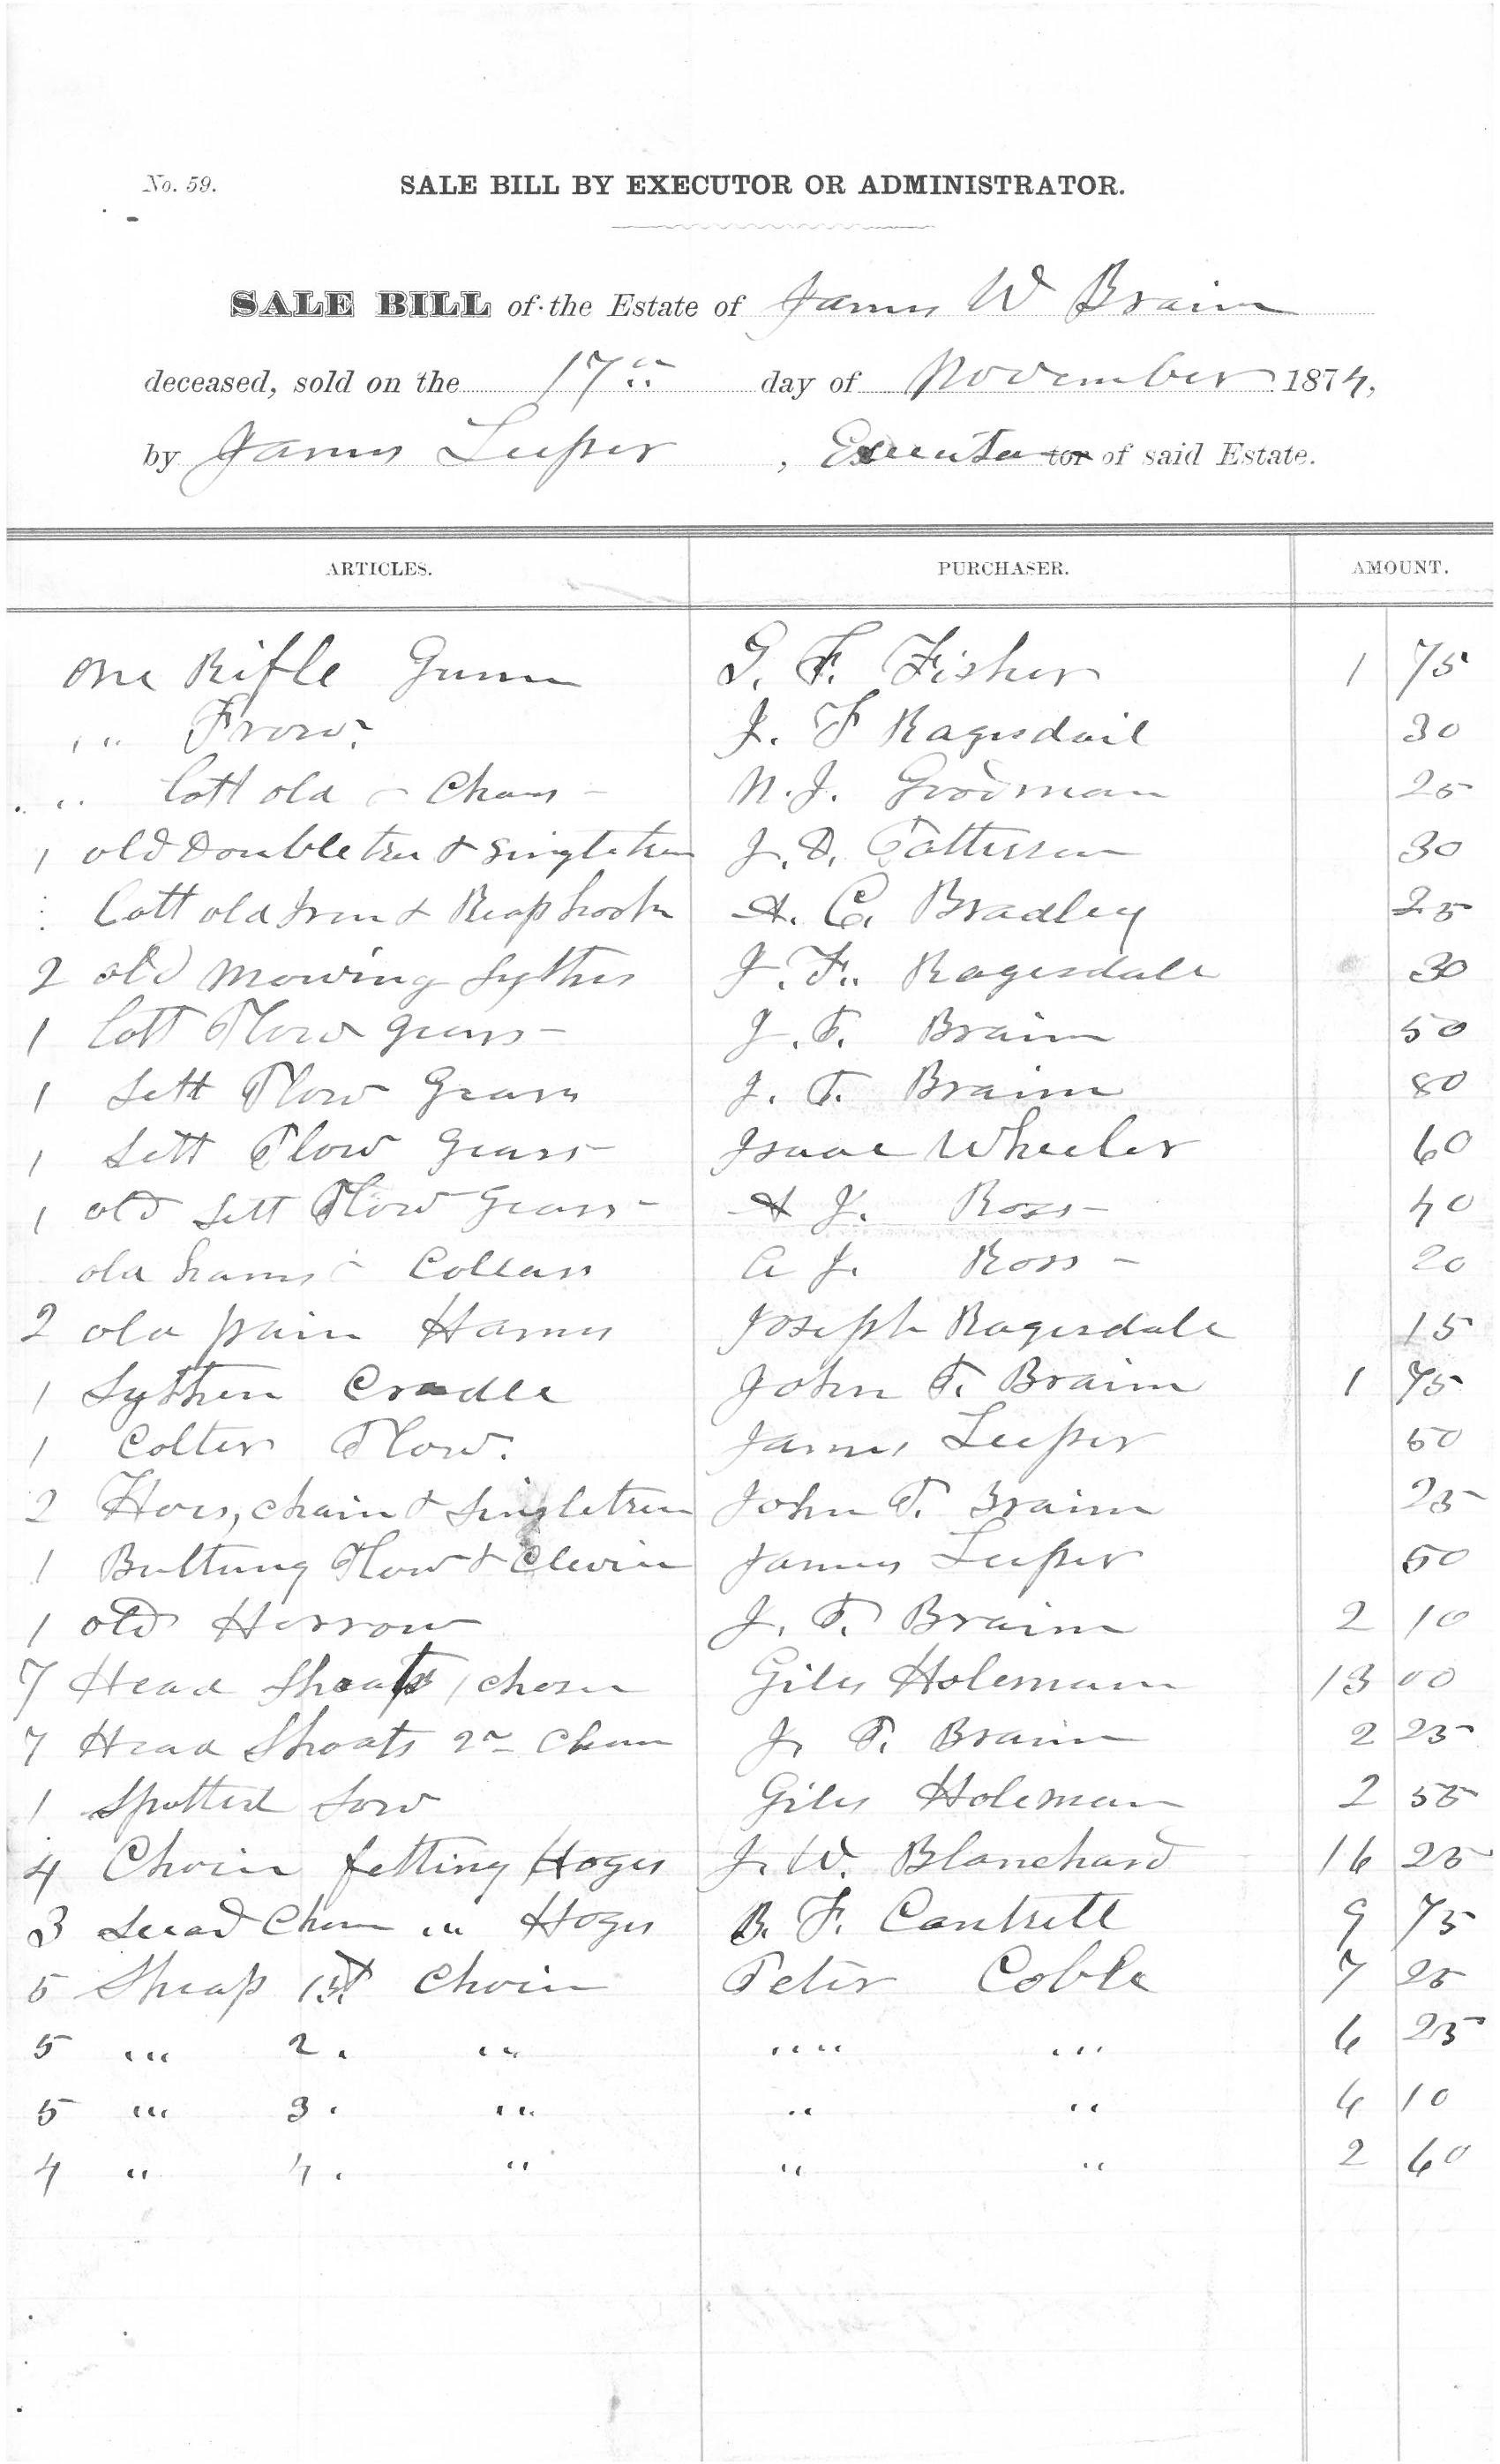 No. 59.
SALE BILL BY EXECUTOR OR ADMINISTRATOR.
SALE BILL of the Estate of James W Braim
deceased, sold on the 17" day of November 1874,
by James Leeper , Executor of said Estate.
ARTICLES. PURCHASER. AMOUNT.
one Rifle Gunn G. F. Fisher 1 75
" Frow. J. F Ragesdail 30
" Lott old Chans N. J. Goodman 25
1 old Doubletree & Singletree J. D. Patterson 30
Lott old Iron & Reap hook A. C. Bradley 25
2 old Mowing Sythes J. F. Ragesdale 30
1 Lott Plow Gears J. T. Braim 50
1 Sett Plow Gears J. T. Braim 80
1 Sett Plow Gears Isaac Wheeler 60
1 old Sett Plow Gears A J. Ross 40
old hames Collars A J. Ross 20
2 old pair Hames Joseph Ragesdale 15
1 Sythen Cradle John T. Braim 1 75
1 Colter Plow. James Leeper 50
2 Hoes, chain & Singletree John T. Braim 25
1 Bultung Plow & Clevis James Leeper 50
1 old Harrow J. T. Braim 2 10
7 Head Shoats 1 chose Giles Holeman 13 00
7 Head Shoats 2nd J. T. Braim 2 25
1 Spotted Sow Giles Holeman 2 55
4 Choice fetting Hoges J. W. Blanchard 16 25
3 " Hoges B. F. Cantrell 9 75
5 Sheap 1st Choice Peter Coble 7 25
5 " 2. " " " 6 25
5 " 3. " " " 4 10
4 " 4. " " " 2 60